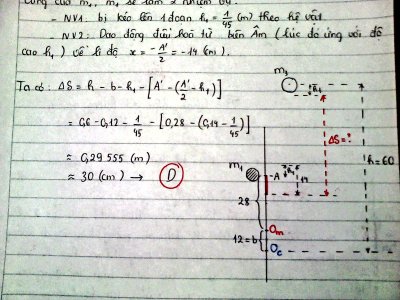 cùng của m₁, m₂ sẽ làm 2 nhiệm vụ:
- NV1. bị kéo lên 1 đoạn h₁ = 1/45 (m) theo hệ vật.
- NV2: Dao động điều hoà từ biên Âm (lúc đó ứng với độ
cao h₁) về li độ x = -A'/2 = -14 (cm).
Ta có: ΔS = h - b - h₁ - [A' - (A'/2 - h₁)]
= 0,6 - 0,12 - 1/45 - [0,28 - (0,14 - 1/45)]
≈ 0,29555 (m)
≈ 30 (cm) → D
m₃
h₁
ΔS = ?
h = 60
m₁
-A
h₁
14
28
Om
12 = b
Oc